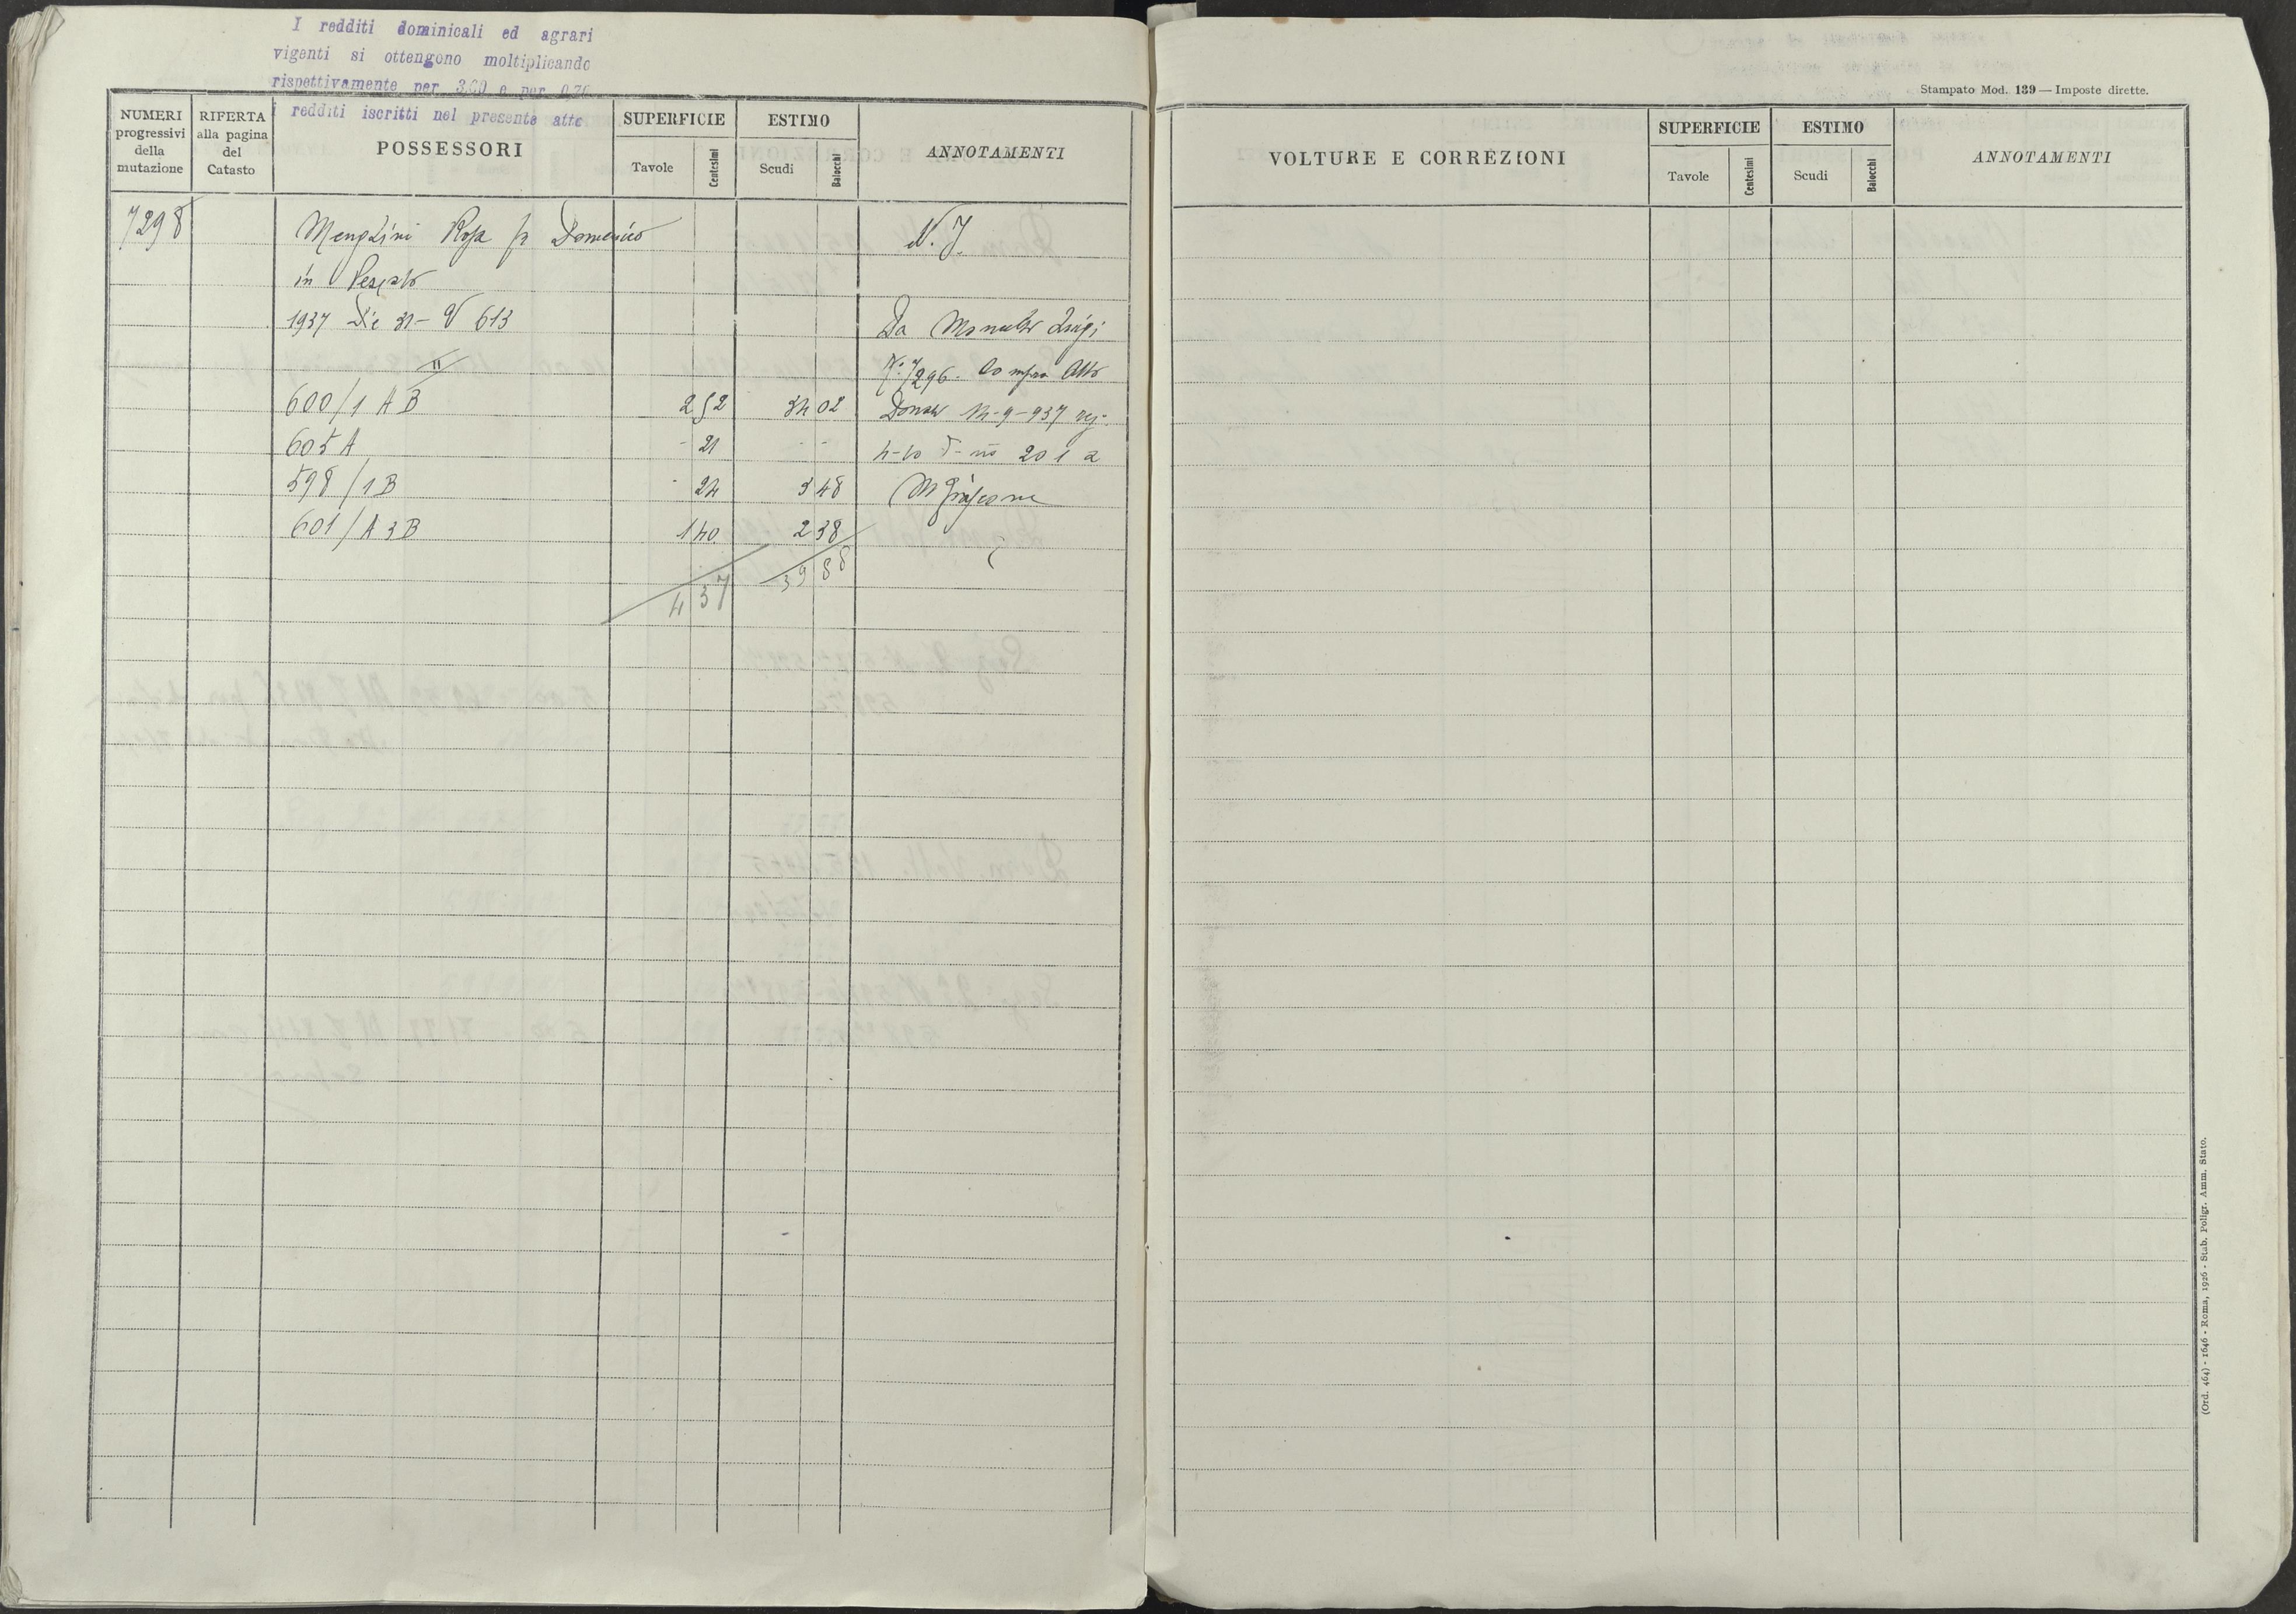 I redditi dominicali ed agrari
vigenti si ottengono moltiplicando
rispettivamente per 3,60 e per 0,70
i redditi iscritti nel presente atto
NUMERI progressivi della mutazione
RIFERTA alla pagina del Catasto
POSSESSORI
SUPERFICIE
Tavole
Centesimi
ESTIMO
Scudi
Baiocchi
ANNOTAMENTI
7298 Rosa fu Domenico N. I.
in
1937 Dic 31 - V 613 Da Luigi
II N. 7296. Atto
600/1 A B 2 52 34 02 14-9-937
605 A - 21 - - 201 a
598/1 B - 24 3 48
601/A 3 B 1 40 2 38
4 37 39 88
Stampato Mod. 139 — Imposte dirette.
VOLTURE E CORREZIONI
SUPERFICIE
Tavole
Centesimi
ESTIMO
Scudi
Baiocchi
ANNOTAMENTI
(Ord. 464) - 1646 - Roma, 1926 - Stab. Poligr. Amm. Stato.